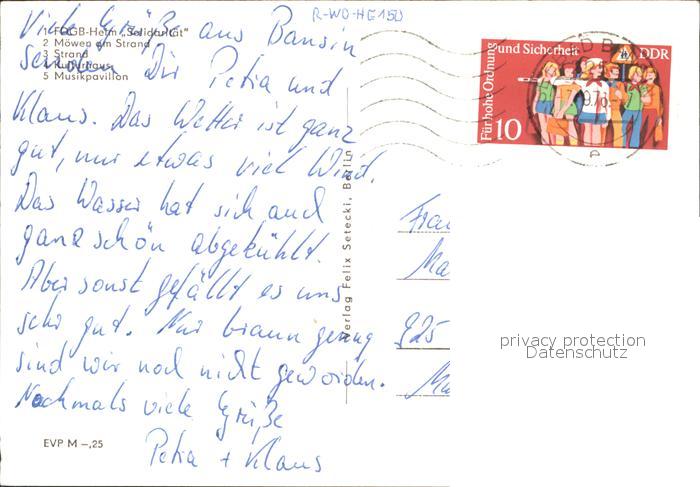 R-WO-HG150
1 FDGB-Heim „Solidarität"
2 Möwen am Strand
3 Strand
4 Kulturhaus
5 Musikpavillon
Viele Grüße aus Bansin
senden Dir Petra und
Klaus. Das Wetter ist ganz
gut, nur etwas viel Wind.
Das Wasser hat sich auch
ganz schön abgekühlt.
Aber sonst gefällt es uns
sehr gut. Nur braun genug
sind wir noch nicht geworden.
Nochmals viele Grüße
Petra + Klaus
EVP M –,25
Verlag Felix Setecki, Berlin
Für hohe Ordnung
und Sicherheit
DDR
10
e
Frau
Ma
925
privacy protection
Datenschutz